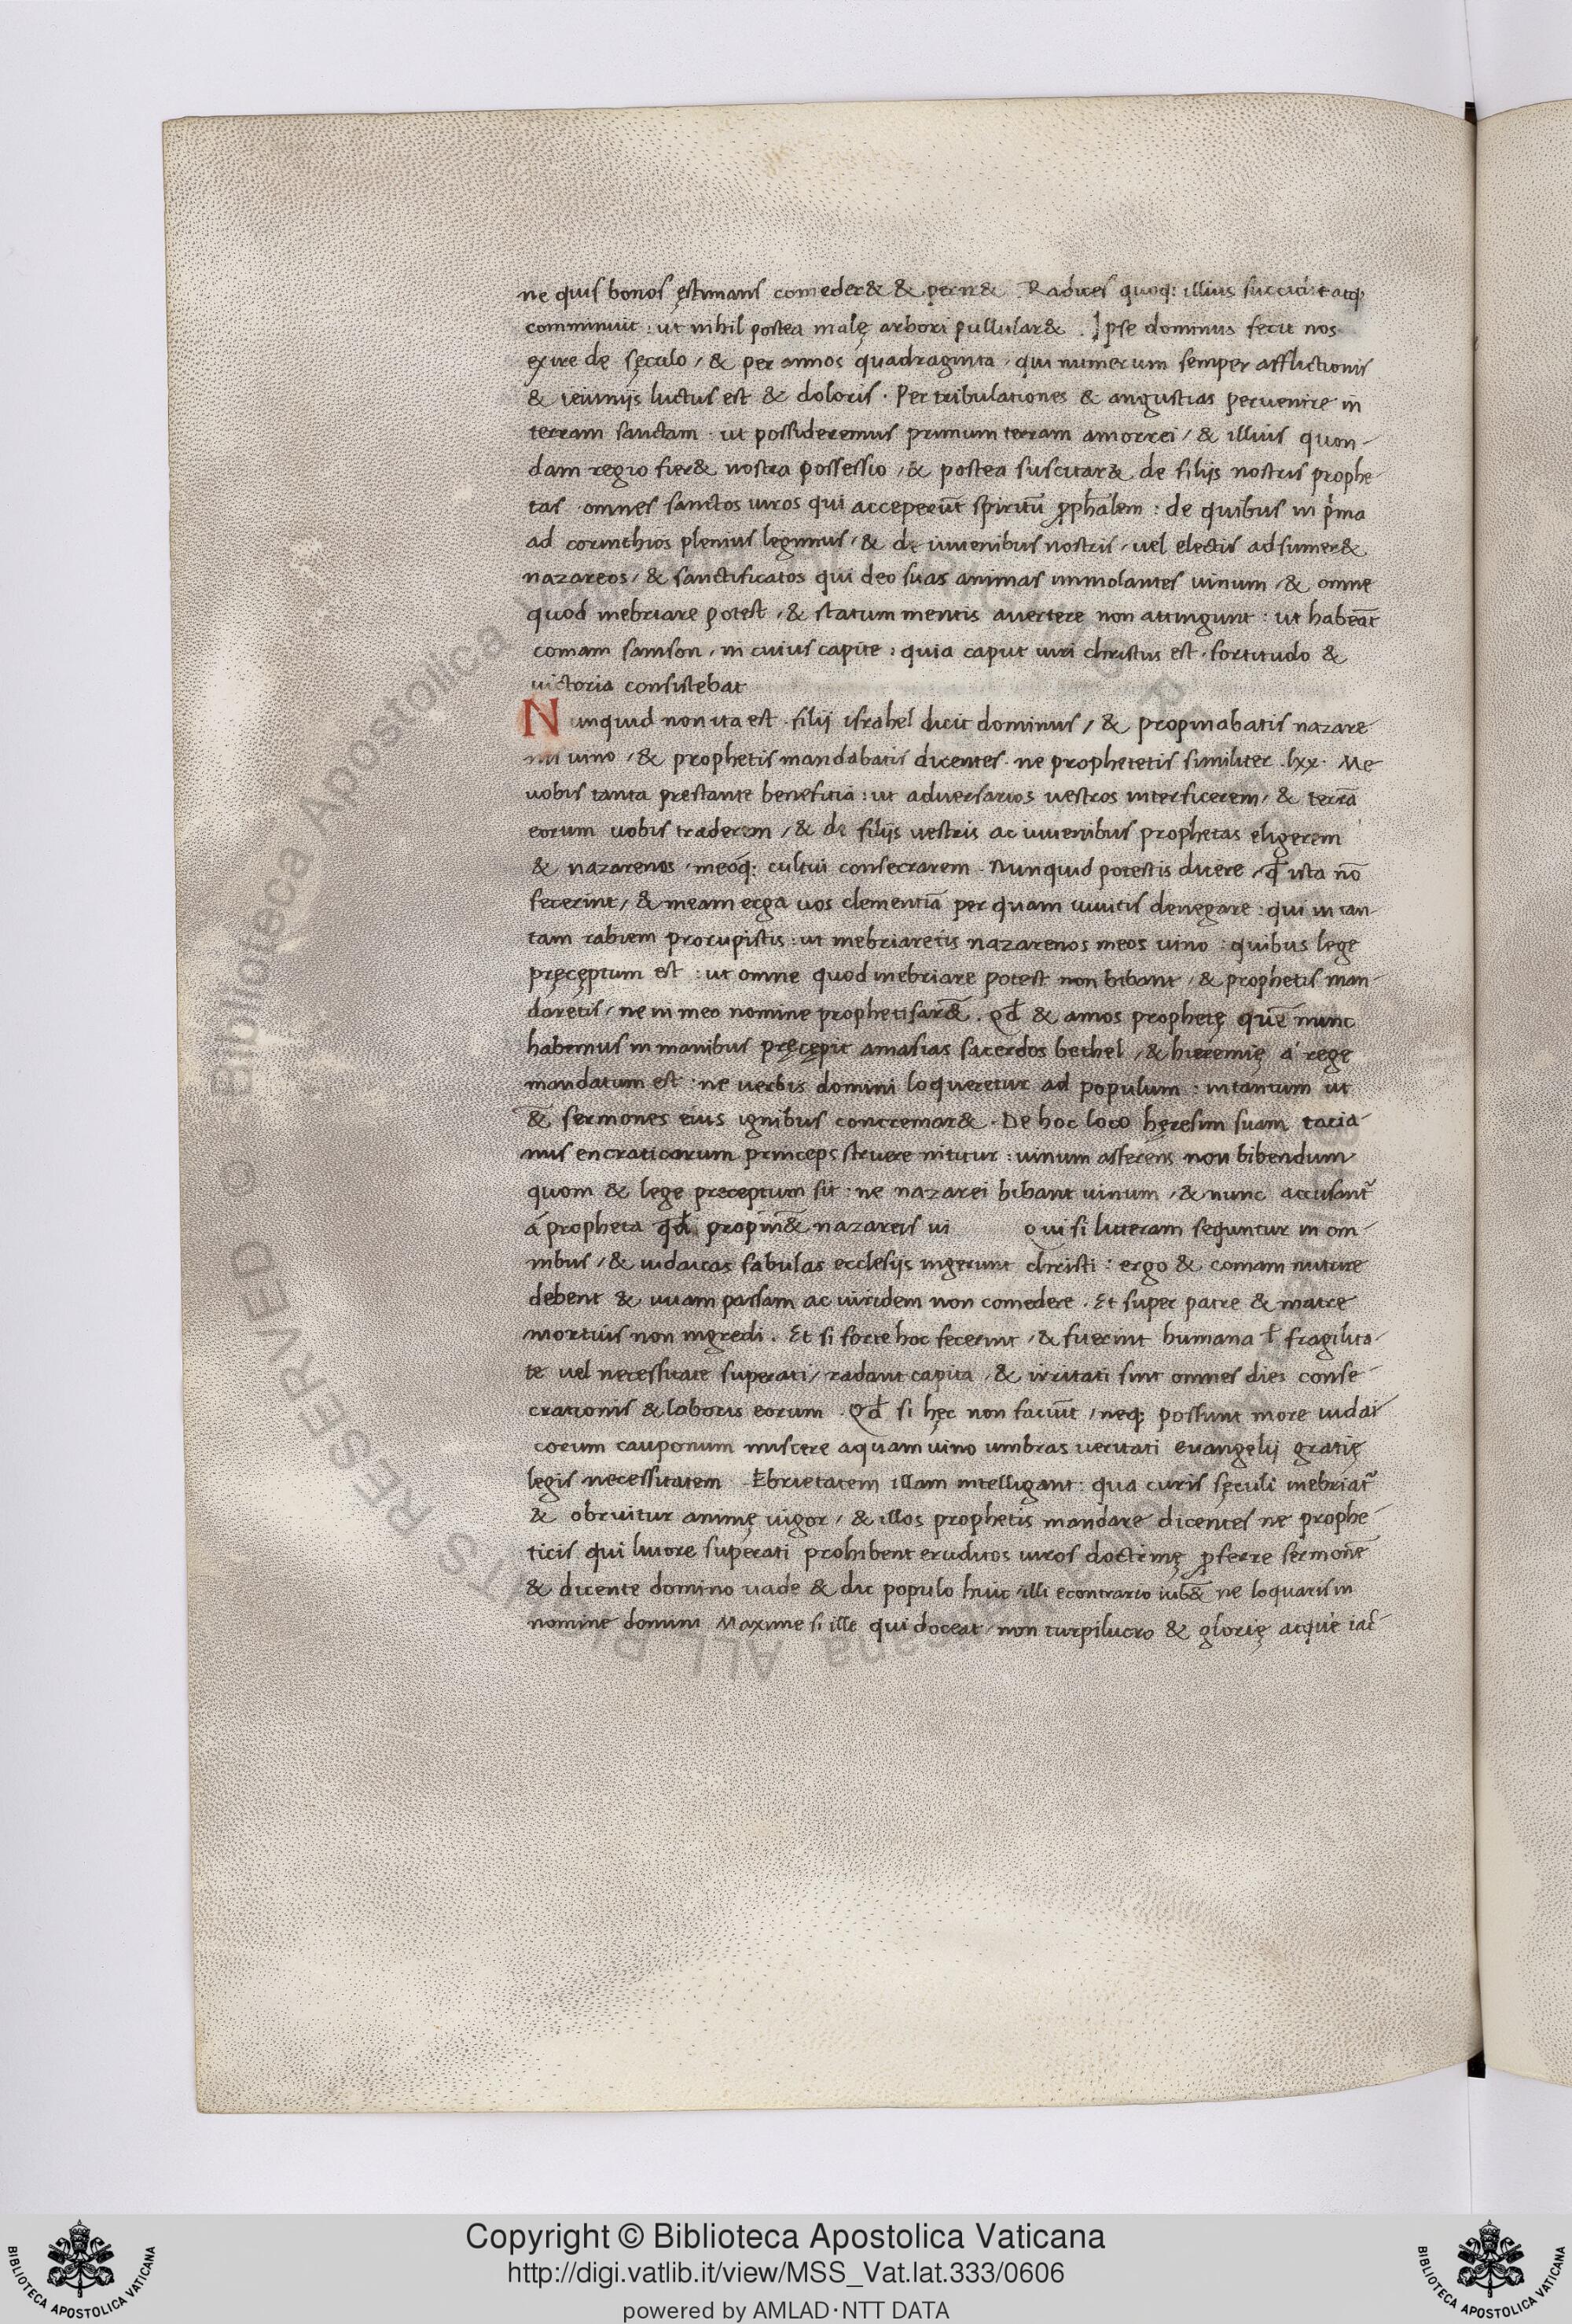 ne quis bonos ęstimans comeder& & perir& . Radices quoq; illius succidit atq;
comminuit : ut nihil postea malę arbori pullular& . Ipse dominus fecit nos
exire de sęculo / & per annos quadraginta · qui numerum semper afflictionis
& ieiunijs luctus est & doloris . Per tribulationes & angustias peruenire in
terram sanctam · ut possideremus primum terram amorrei / & illius quon-
dam regio fier& nostra possessio / & postea suscitar& de filijs nostris prophe-
tas · omnes sanctos uiros qui acceperūt spiritū ꝓphālem : de quibus in pͥma
ad corinthios plenius legimus / & de iuuenibus nostris / uel electis adsumer&
nazareos / & sanctificatos qui deo suas animas immolantes uinum / & omne
quod inebriare potest / & statum mentis auertere non attingunt : ut habeāt
comam samson / in cuius capite : quia caput uiri christus est · fortitudo &
uictoria consistebat
Nunquid non ita est · filij israhel dicit dominus / & propinabatis nazare-
nis uino / & prophetis mandabatis dicentes · ne prophetetis similiter . lxx . Me
uobis tanta prestante beneficia : ut aduersarios uestros interficerem / & terrā
eorum uobis traderem / & de filijs uestris ac iuuenibus prophetas eligerem
& nazarenos · meoq; cultui consecrarem . Nunquid potestis dicere / qđ ista nō
fecerint / & meam erga uos clementiā per quam uiuitis denegare : qui in tan-
tam rabiem prorupistis : ut inebriaretis nazarenos meos uino : quibus lege
pręcęptum est : ut omne quod inebriare potest non bibant / & prophetis man-
daretis / ne in meo nomine prophetisar&̄ . Qđ & amos prophetę quē nunc
habemus in manibus pręcępit amasias sacerdos bethel / & hieremię á rege
mandatum est : ne uerbis domini loqueretur ad populum : intantum ut
& sermones eius ignibus concremar& . De hoc loco hęresim suam tatia-
nus encraticarum princeps struere nititur : uinum asserens non bibendum
quom & lege preceptum sit : ne nazarei bibant uinum / & nunc accusant᷑
á propheta qđ propin&̄ nazareis ui o ui si litteram sequntur in om-
nibus / & iudaicas fabulas ecclesijs ingerunt christi : ergo & comam nutrire
debent & uuam passam ac uiridem non comedere . Et super patre & matre
mortuis non ingredi . Et si forte hoc fecerint / & fuerint humana ł fragilita-
te uel necessitate superati / radant capita / & irritati sint omnes dies conse-
crationis & laboris eorum . Qđ si hęc non faciūt / neq; possunt more iudai-
corum cauponum miscere aquam uino umbras ueritati euangelij gratię
legis necessitatem . Ebrietatem illam intelligant : qua curis sęculi inebriat᷑
& obruitur animę uigor / & illos prophetis mandare dicentes ne prophe-
ticis qui liuore superati prohibent eruditos uiros doctrinę ꝓferre sermonē
& dicente domino uade & dic populo huic / illi econtrario iub&̄ ne loquaris in
nomine domini Maxime si ille qui doceat / non turpilucro & glorię atque iac-
Copyright © Biblioteca Apostolica Vaticana
http://digi.vatlib.it/view/MSS_Vat.lat.333/0606
powered by AMLAD·NTT DATA
BIBLIOTECA APOSTOLICA VATICANA
BIBLIOTECA APOSTOLICA VATICANA